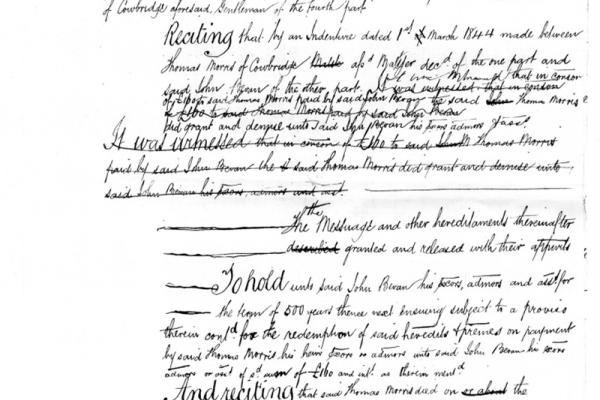 of Cowbridge aforesaid, Gentleman of the fourth part
Reciting that by an Indenture dated 1st March 1844 made between
Thomas Morris of Cowbridge afsd Maltster decd of the one part and
said John Bevan of the other part. It was witnessed that in conson
of £160 to said Thomas Morris paid by said John Bevan the said Thomas Morris
as £160 to said Thomas Morris paid by said John Bevan
did grant and demise unto said John Bevan his exors admors
It was witnessed that in conson of £160 to said Thomas Morris
paid by said John Bevan the said Thomas Morris did grant and demise unto
said John Bevan his exors, admors and ass.
the
The Messuage and other hereditaments thereinafter
described granted and released with their appurts
To hold unto said John Bevan his exors, admors and asst for
the term of 500 years thence next ensuing subject to a proviso
therein contd for the redemption of said heredits & premes on payment
by said Thomas Morris his heirs exors or admors unto said John Bevan his exors
admors or asst of sd sum of £160 and int. as therein mentd
And reciting that said Thomas Morris died on or about the